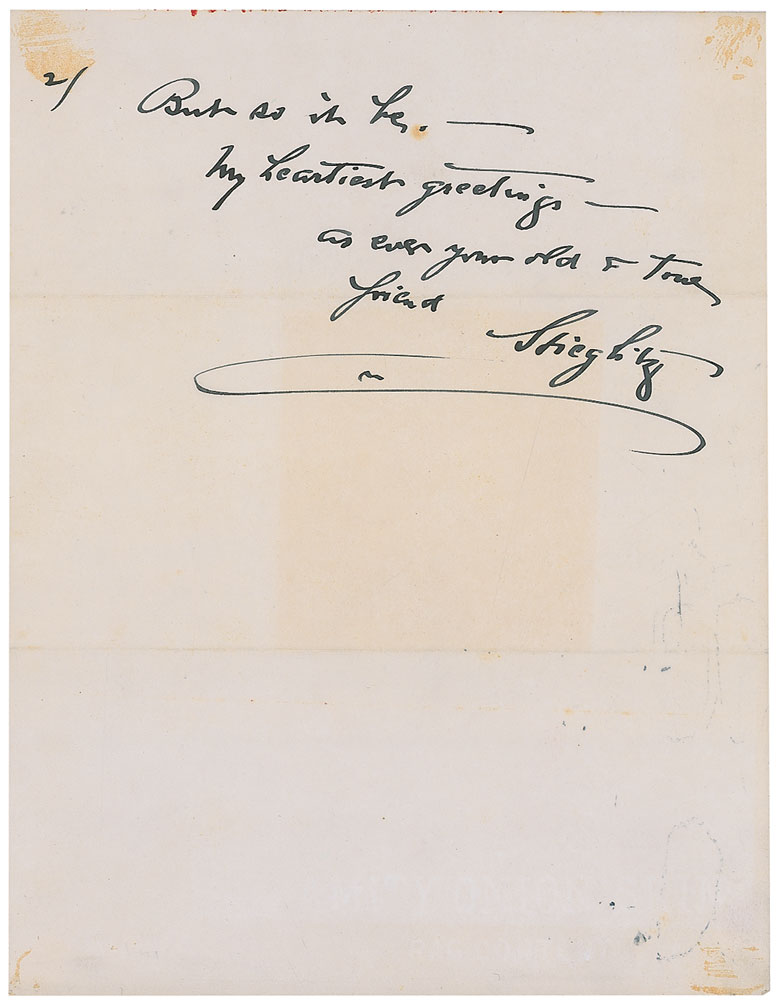 2/
But so it be. —
My heartiest greetings —
as ever your old & true
friend
Stieglitz